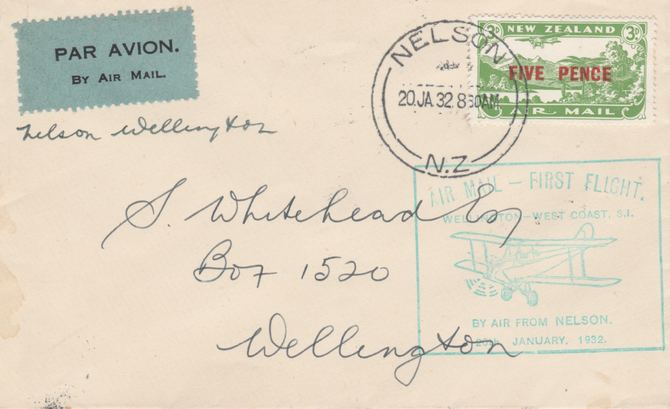 PAR AVION.
BY AIR MAIL.
NELSON
20 JA 32 8 30AM
N.Z
NEW ZEALAND
3D 3D
FIVE PENCE
AIR MAIL
Nelson Wellington
S. Whitehead Esq
Box 1520
Wellington
AIR MAIL — FIRST FLIGHT.
WELLINGTON—WEST COAST, S.I.
BY AIR FROM NELSON.
20th JANUARY, 1932.